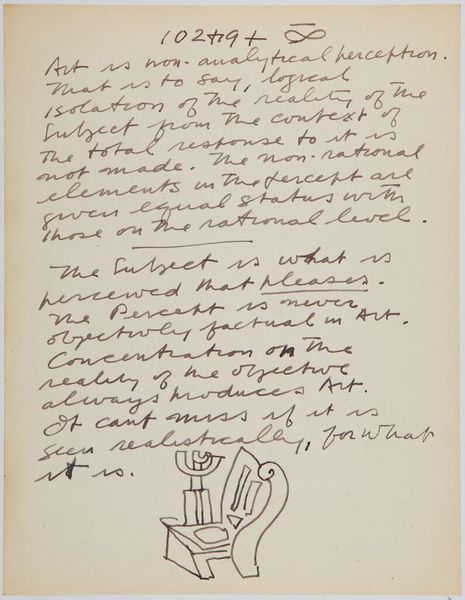 102+9+ ∞
Art is non-analytical perception.
That is to say, logical
isolation of the reality of the
Subject from the context of
the total response to it is
not made. The non-rational
elements in the percept are
given equal status with
those on the rational level.
The Subject is what is
perceived that pleases.
The Percept is never
objectively factual in Art.
Concentration on the
reality of the objective
always produces Art.
It cant miss if it is
seen realistically, for what
it is.